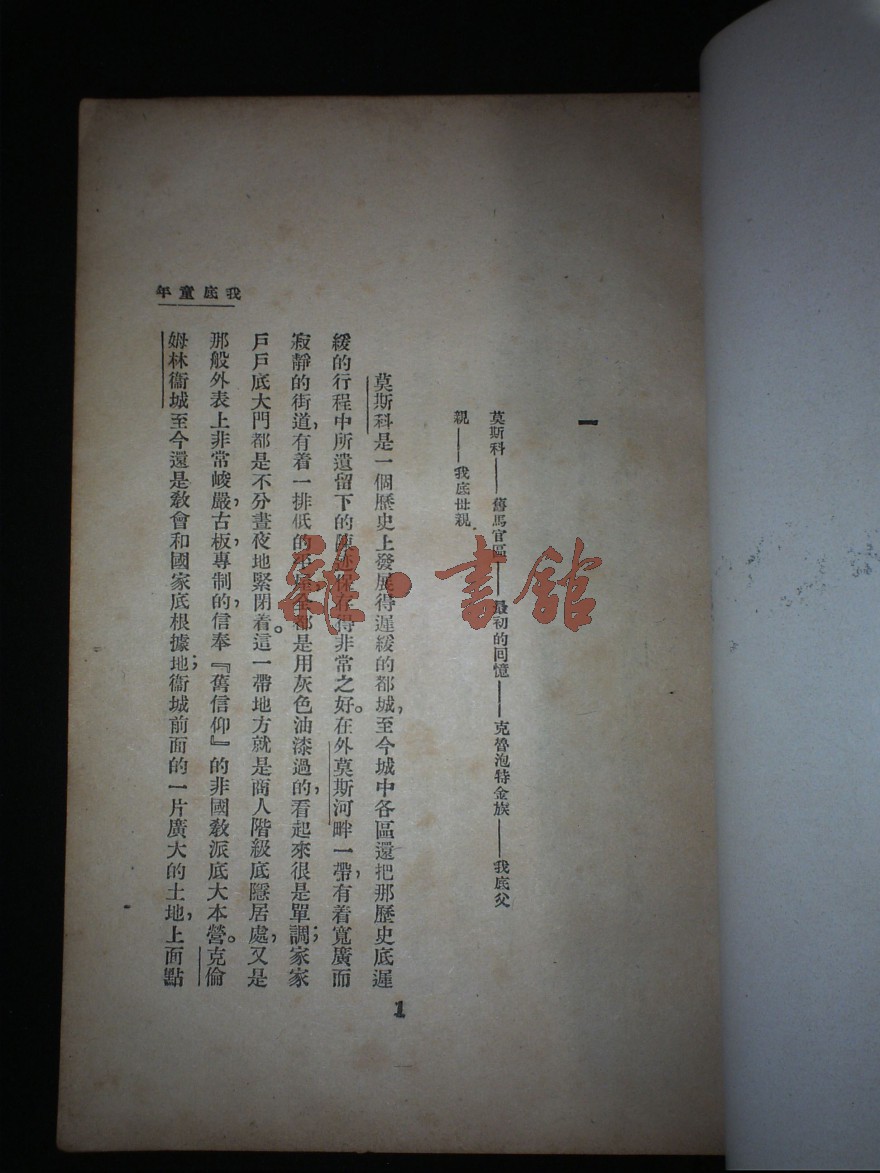 一
莫斯科——舊馬官區——最初的回憶——克魯泡特金族——我底父
親——我底母親
莫斯科是一個歷史上發展得遲緩的都城，至今城中各區還把那歷史底遲
緩的行程中所遺留下的陳跡保存得非常之好。在外莫斯河畔一帶，有着寬廣而
寂靜的街道，有着一排低的平屋全都是用灰色油漆過的，看起來很是單調；家家
戶戶底大門都是不分晝夜地緊閉着。這一帶地方就是商人階級底隱居處，又是
那般外表上非常峻嚴，古板，專制的，信奉『舊信仰』的非國教派底大本營。克倫
姆林衞城至今還是教會和國家底根據地；衞城前面的一片廣大的土地，上面點
我底童年
1
雜·書館